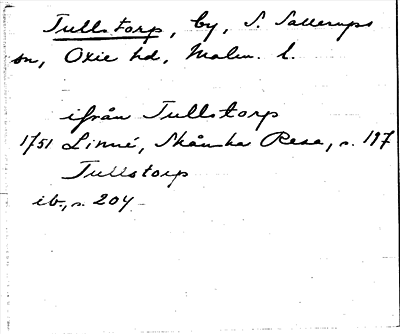 Tullstorp, by, S. Sallerups
sn, Oxie hd, Malm. l.
ifrån Tullstorp
1751 Linné, Skånska Resa, s. 197
Tullstorp
ib., s. 204